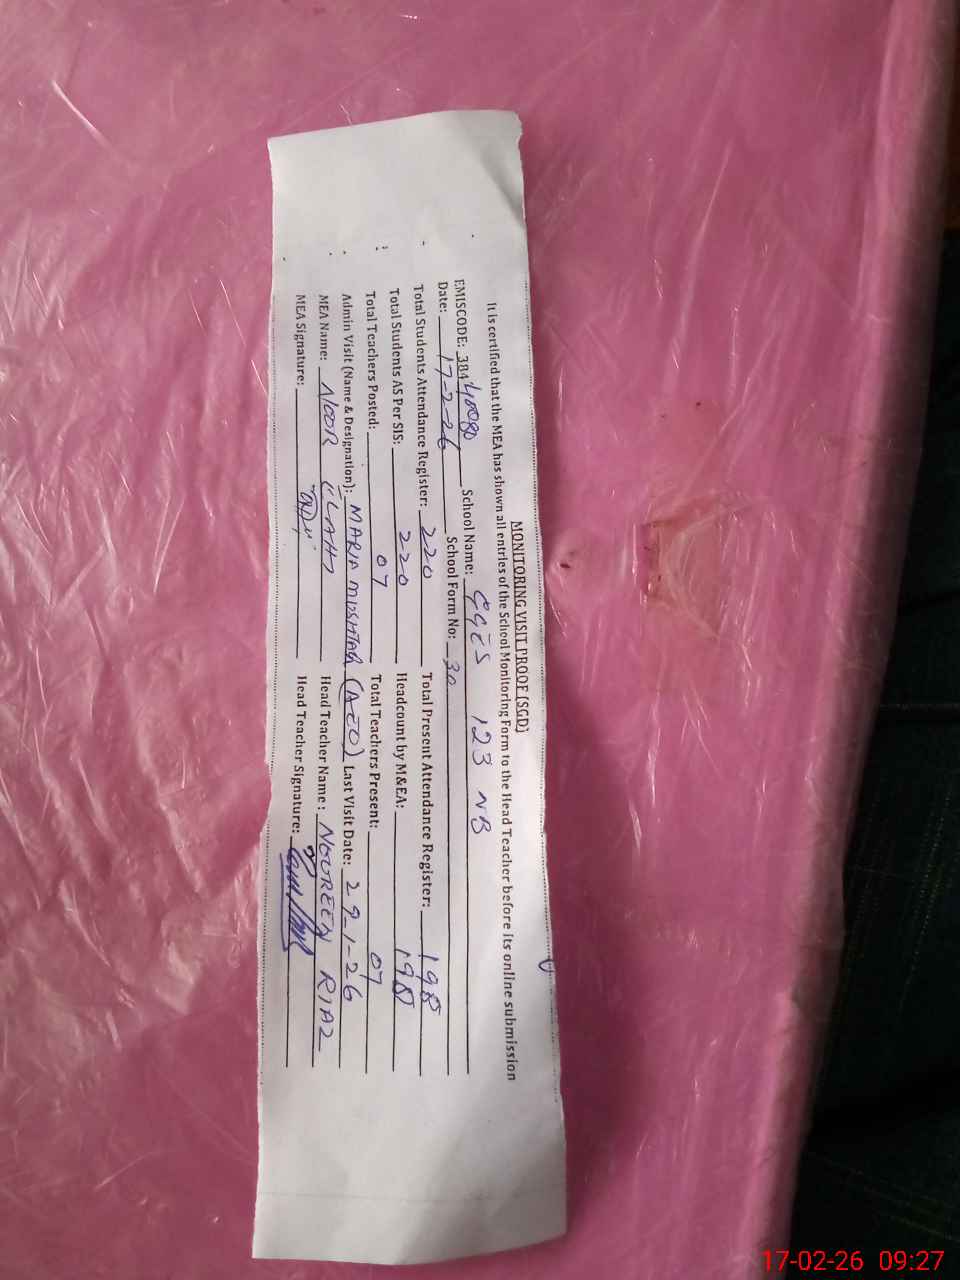 MONITORING VISIT PROOF (SGD)
It is certified that the MEA has shown all entries of the School Monitoring Form to the Head Teacher before its online submission
EMISCODE: 38440080 School Name: GGES 123 NB
Date: 17-2-26 School Form No: 30
Total Students Attendance Register: 220 Total Present Attendance Register: 198
Total Students AS Per SIS: 220 Headcount by M&EA: 198
Total Teachers Posted: 07 Total Teachers Present: 07
Admin Visit (Name & Designation): MARIA MUSHTAQ (AEO) Last Visit Date: 29-1-26
MEA Name: NOOR ILAHI Head Teacher Name: NOUREEN RIAZ
MEA Signature: Head Teacher Signature:
17-02-26 09:27